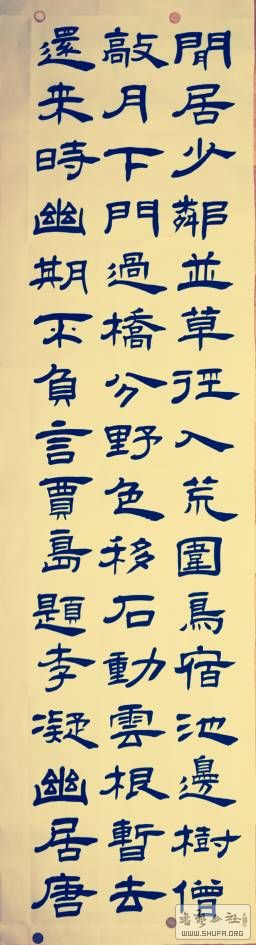 閒居少鄰並草徑入荒園鳥宿池邊樹僧
敲月下門過橋分野色移石動雲根暫去
還来時幽期不負言賈島題李凝幽居唐
书艺公社
WWW.SHUFA.ORG